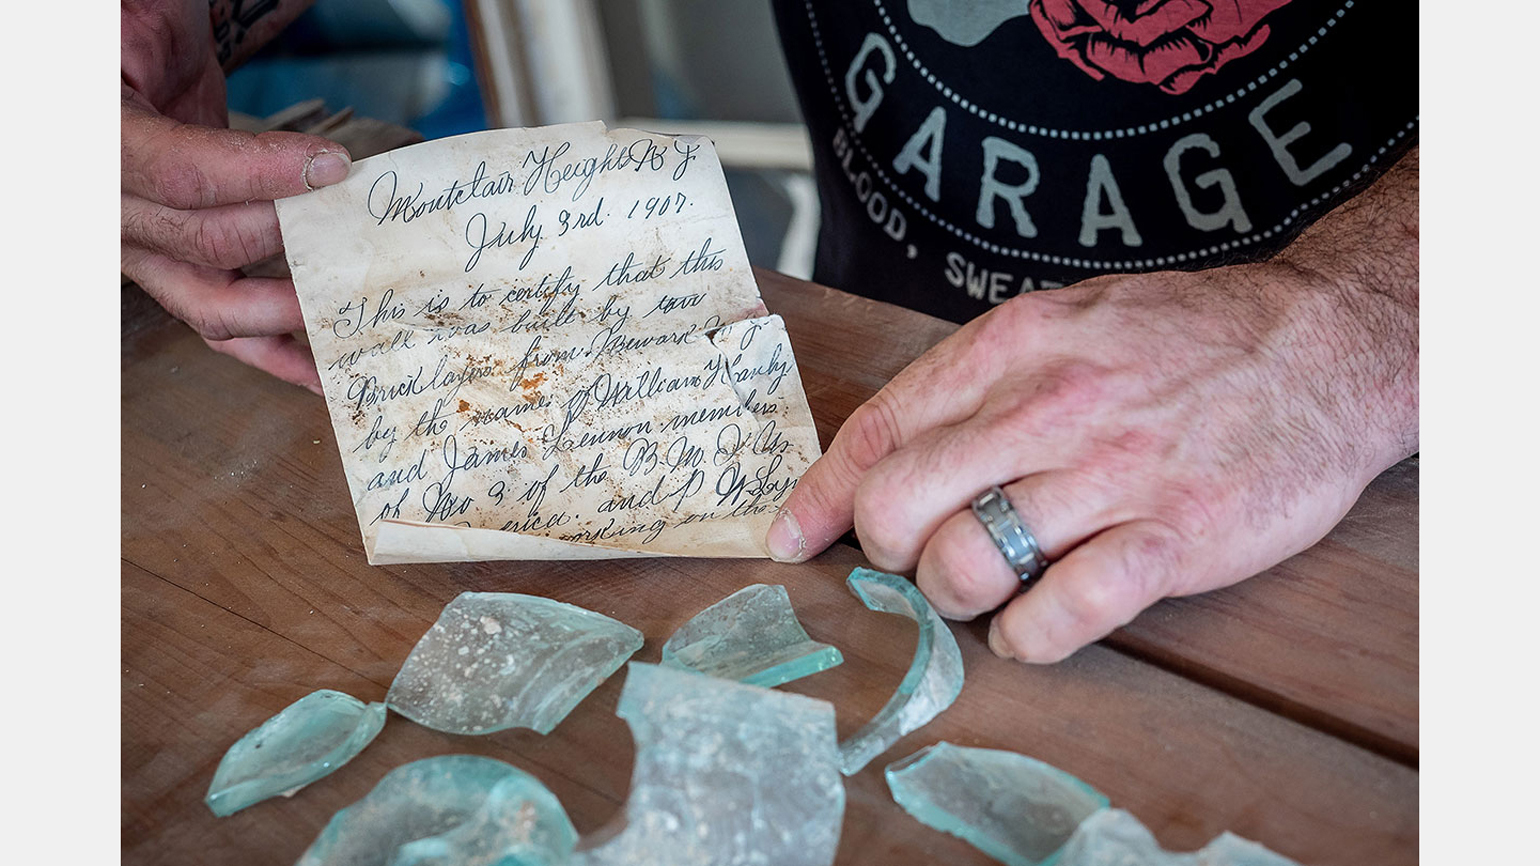 Montclair Heights N J
July 3rd. 1907.
This is to certify that this
wall was built by two
Bricklayers from Newark N. J.
by the names of William Hanly
and James Lennon members
of No 3 of the B. M. I. U.
erica. and P
orking on the
GARAGE
BLOOD, SWEAT